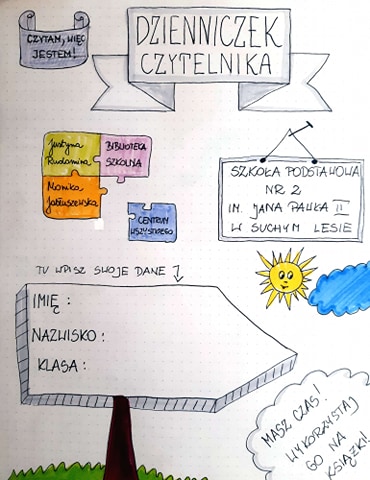 CZYTAM, WIĘC
JESTEM!
DZIENNICZEK
CZYTELNIKA
Justyna
Rudomina
BIBLIOTEKA
SZKOLNA
Monika
CENTRUM
WSZYSTKIEGO
SZKOŁA PODSTAWOWA
NR 2
IM. JANA PAWŁA II
W SUCHYM LESIE
TU WPISZ SWOJE DANE
IMIĘ :
NAZWISKO :
KLASA :
MASZ CZAS!
WYKORZYSTAJ
GO NA
KSIĄŻKI!